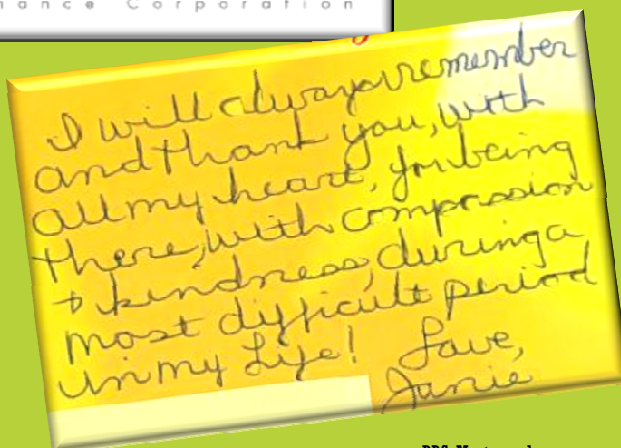 nance Corporation
I will always remember
and thank you, with
all my heart, for being
there, with compassion
+ kindness, during a
most difficult period
in my Life!
Love,
Janie